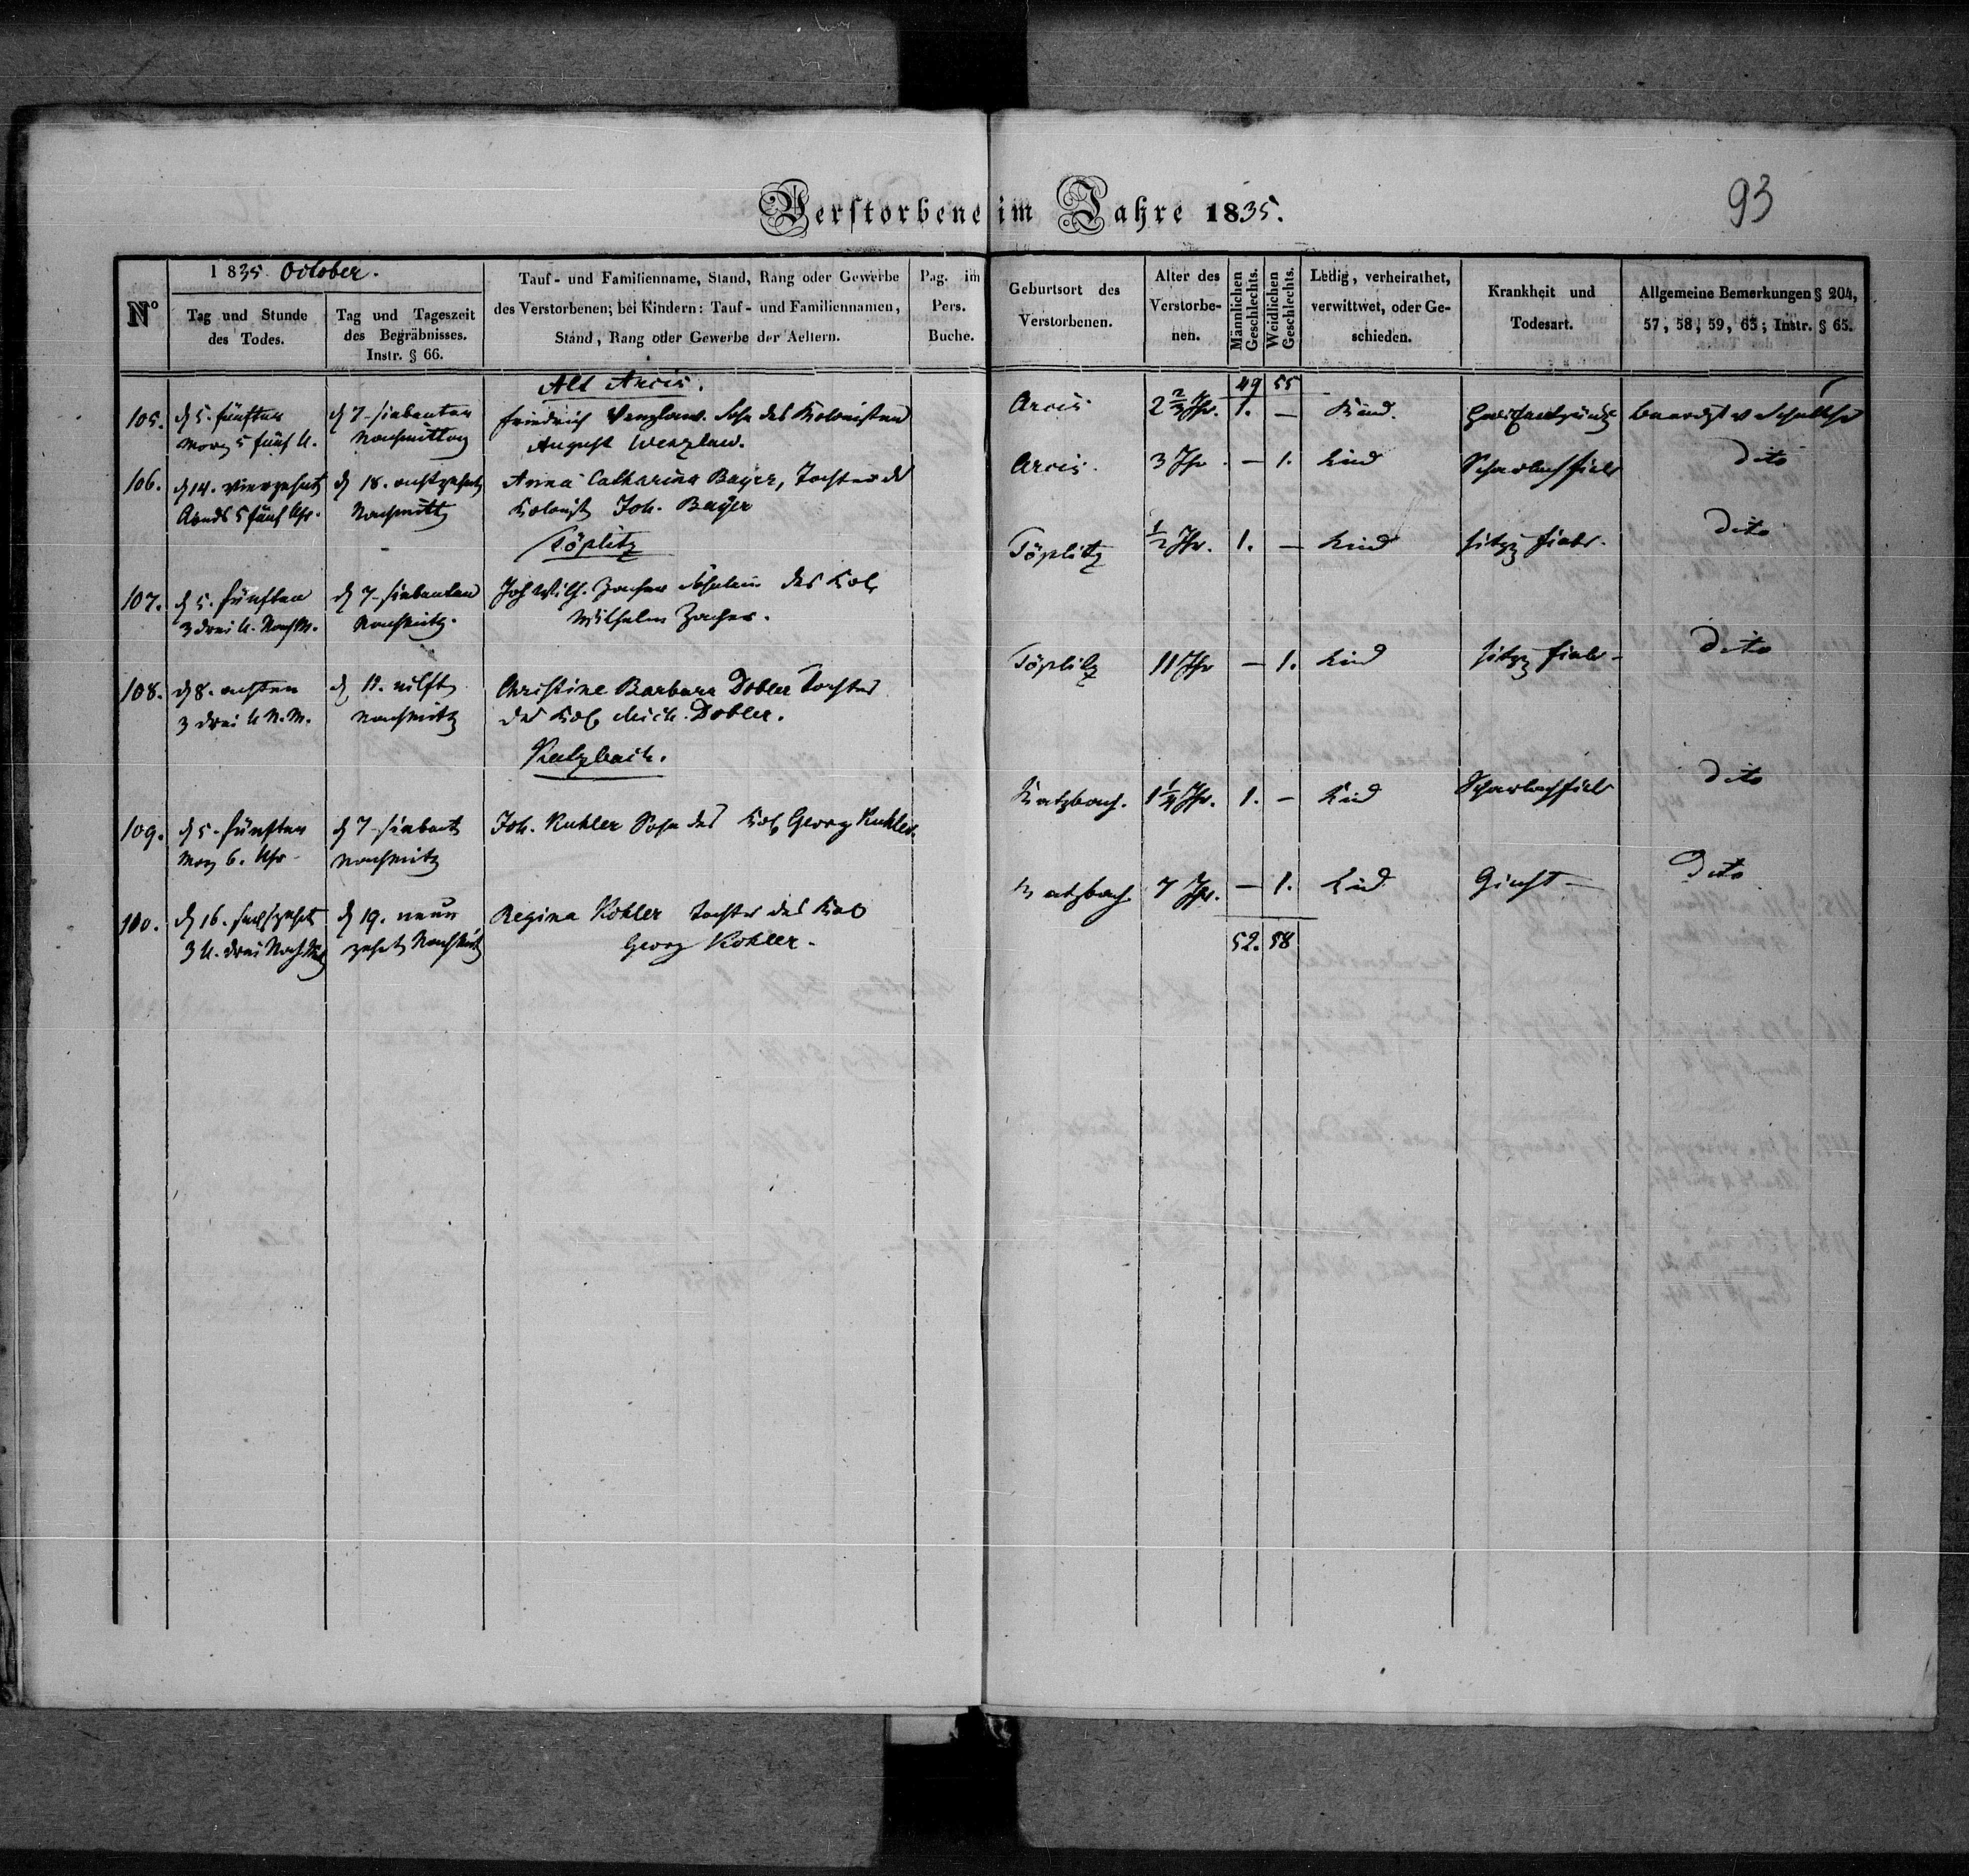 Verstorbene im Jahre 1835.
93
No
1835 October.
Tag und Stunde des Todes.
Tag und Tageszeit des Begräbnisses. Instr. § 66.
Tauf- und Familienname, Stand, Rang oder Gewerbe
des Verstorbenen; bei Kindern: Tauf- und Familiennamen,
Stand, Rang oder Gewerbe der Aeltern.
Pag. im Pers. Buche.
Geburtsort des Verstorbenen.
Alter des Verstorbenen.
Männlichen Geschlechts.
Weiblichen Geschlechts.
Ledig, verheirathet, verwittwet, oder Geschieden.
Krankheit und Todesart.
Allgemeine Bemerkungen § 204,
57, 58, 59, 63; Instr. § 65.
Alt Arcis.
49 55
105. d 5. fünften d 7. siebenten Friedrich Wenzlaw. Sohn des Kolonisten Arcis 2 2/3 Jhr. 1. — Kind.
Morg 5 fünf U. Nachmittag August Wenzlaw.
106. d 14. vierzehnt d 18. achtzehnt Anna Catharina Bayer, Tochter des Arcis. 3 Jhr. — 1. Kind Scharlachfieber Dito
Abends 5 fünf Uhr. Nachmitt Kolonist Joh. Bayer
Töplitz
107. d 5. fünften d 7. siebenten Joh Wilh. Zacher Söhnlein des Kol Töplitz 1/2 Jhr. 1. — Kind hitzg fieber. Dito
3 drei U. NachM. Nachmitg. Wilhelm Zacher.
108. d 8. achten d 11. eilft Christine Barbara Dobler Tochter Töplitz 11 Jhr — 1. Kind hitzg fieber Dito
3 drei U N. M. Nachmitg des Kol Mich. Dobler.
Katzbach.
109. d 5. fünften d 7. siebent Joh. Kuhler Sohn des Kol Georg Kuhler. Katzbach. 1 1/4 Jhr. 1. — Kind Scharlachfieber Dito
Morg 6. Uhr Nachmitg
110. d 16. sechszehnt d 19. neun Regina Kohler Tochter des Kol Katzbach 7 Jhr. — 1. Kind Gicht — Dito
3 U. drei NachMitg zehnt NachMitg Georg Kohler.
52. 58